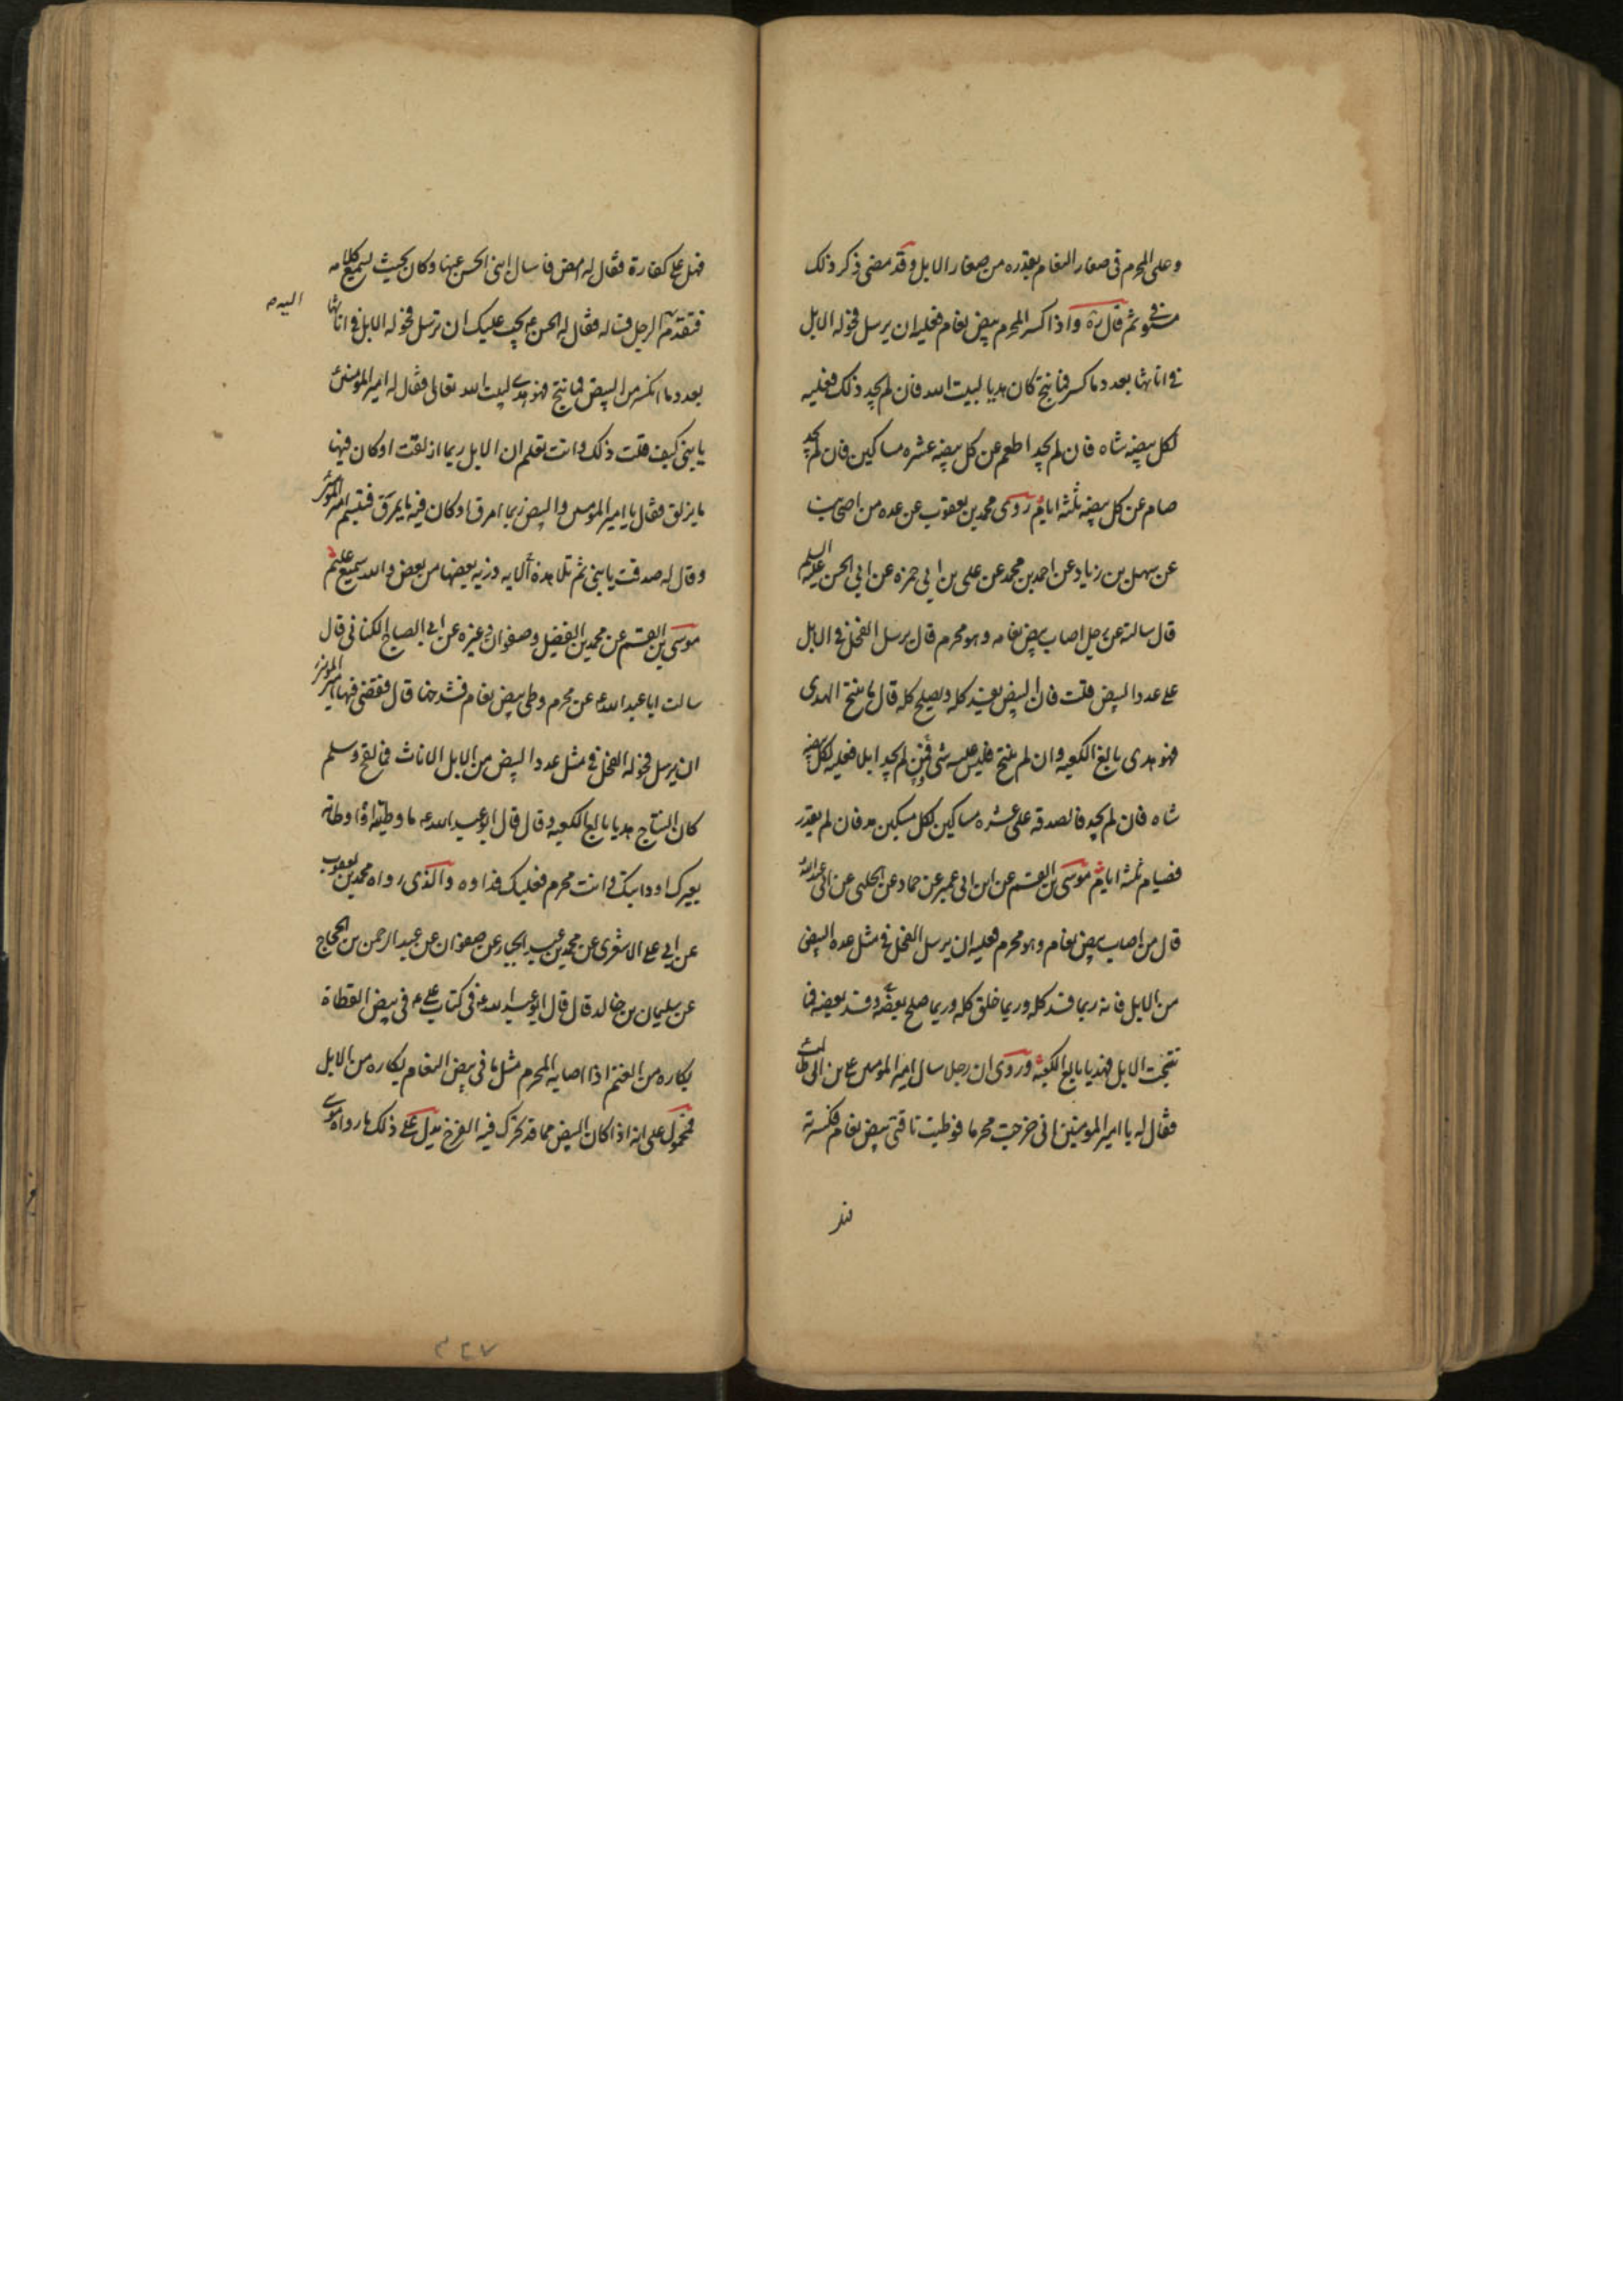 وعلى المحرم في صغار النعام بقدره من صغار الابل وقد مضى ذكر ذلك
مستوفى ثم قال ره واذا كسر المحرم بيض نعام فعليه ان يرسل فحوله الابل
في اناثها بعدد ما كسر فما نتج كان هديا لبيت الله فان لم يجد ذلك فعليه
لكل بيضه شاه فان لم يجد اطعم عن كل بيضه عشره مساكين فان لم يجد
صام عن كل بيضه ثلثه ايام روى محمد بن يعقوب عن عده من اصحابنا
عن سهل بن زياد عن احمد بن محمد عن علي بن ابي حمزه عن ابي الحسن عليه السلم
قال سالته عن رجل اصاب بيض نعامه وهو محرم قال يرسل الفحل في الابل
على عدد البيض قلت فان البيض يفسد كله ويصلح كله قال ما ينتج الهدى
فهو هدى بالغ الكعبه وان لم ينتج فليس عليه شى فمن لم يجد ابلا فعليه لكل بيضه
شاه فان لم يجد فالصدقه على عشره مساكين لكل مسكين مد فان لم يقدر
فصيام ثلثه ايام موسى بن القسم عن ابن ابي عمير عن حماد عن الحلبي عن ابي عبدالله
قال من اصاب بيض نعام وهو محرم فعليه ان يرسل الفحل في مثل عده البيض
من الابل فانه ربما فسد كله وربما خلق كله وربما صلح بعضه وفسد بعضه فما
نتجت الابل فهديا بالغ الكعبه وروى ان رجلا سال امير المومنين علي بن ابي طالب
فقال له يا امير المومنين انى خرجت محرما فوطيت ناقتى بيض نعام فكسرته
فهل
فهل على كفارة فقال له امض فاسال ابنى الحسن عنها وكان بحيث يسمع كلامه
فتقدم اليه الرجل فساله فقال له الحسن ع يجب عليك ان ترسل فحوله الابل في اناثها
بعدد ما انكسر من البيض فما نتج فهو هدى لبيت الله تعالى فقال له امير المومنين
يا بنى كيف قلت ذلك وانت تعلم ان الابل ربما ازلقت او كان فيها
ما يزلق فقال يا امير المومنين والبيض ربما امرق او كان فيه ما يمرق فتبسم امير المومنين
وقال له صدقت يا بنى ثم تلا هذه الايه ذريه بعضها من بعض والله سميع عليم
موسى بن القسم عن محمد بن الفضيل وصفوان وغيره عن ابي الصباح الكنانى قال
سالت ابا عبد الله ع عن محرم وطى بيض نعام فشدخها قال فقضى فيها امير المومنين
ان يرسل فحوله الفحل في مثل عدد البيض من الابل الاناث فما لقح وسلم
كان النتاج هديا بالغ الكعبه وقال قال ابو عبد الله ع ما وطيته او وطاه
بعيرك او دابتك وانت محرم فعليك فداوه والذى رواه محمد بن يعقوب
عن ابي علي الاشعرى عن محمد بن عبد الجبار عن صفوان عن عبد الرحمن بن الحجاج
عن سليمان بن خالد قال قال ابو عبد الله ع فى كتاب علي ع فى بيض القطاة
بكاره من الغنم اذا اصابه المحرم مثل ما فى بيض النعام بكاره من الابل
فمحمول على انه اذا كان البيض مما قد تحرك فيه الفرخ يدل على ذلك ما رواه موسى